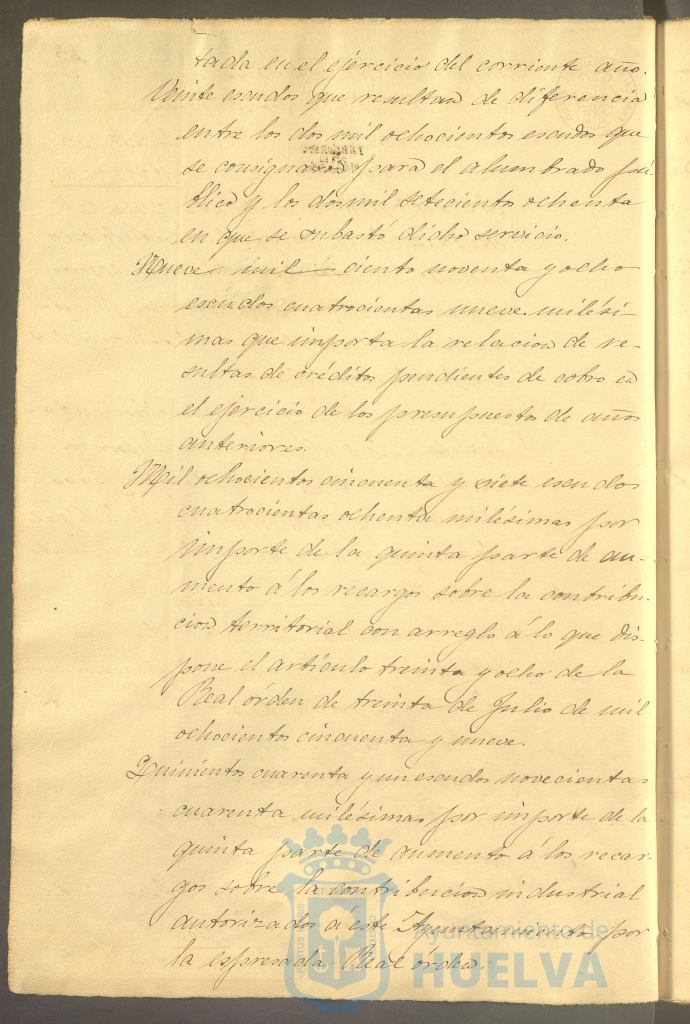 tada en el ejercicio del corriente año.
Veinte escudos que resultan de diferencia
entre los dos mil ochocientos escudos que
se consignaron para el alumbrado pú-
blico y los dosmil setecientos ochenta
en que se subastó dicho servicio.
Nueve mil ciento noventa y ocho
escudos cuatrocientas nueve milési-
mas que importa la relacion de re-
sultas de créditos pendientes de cobro en
el ejercicio de los presupuestos de años
anteriores.
Mil ochocientos cincuenta y siete escudos
cuatrocientas ochenta milésimas por
importe de la quinta parte de au-
mento á los recargos sobre la contribu-
cion territorial con arreglo á lo que dis-
pone el artículo treinta y ocho de la
Real órden de treinta de Julio de mil
ochocientos cincuenta y nueve.
Quinientos cuarenta y un escudos novecientas
cuarenta milésimas por importe de la
quinta parte de aumento á los recar-
gos sobre la contribucion industrial
autorizados á este Ayuntamiento por
la espresada Real órden.
Ayuntamiento de
HUELVA